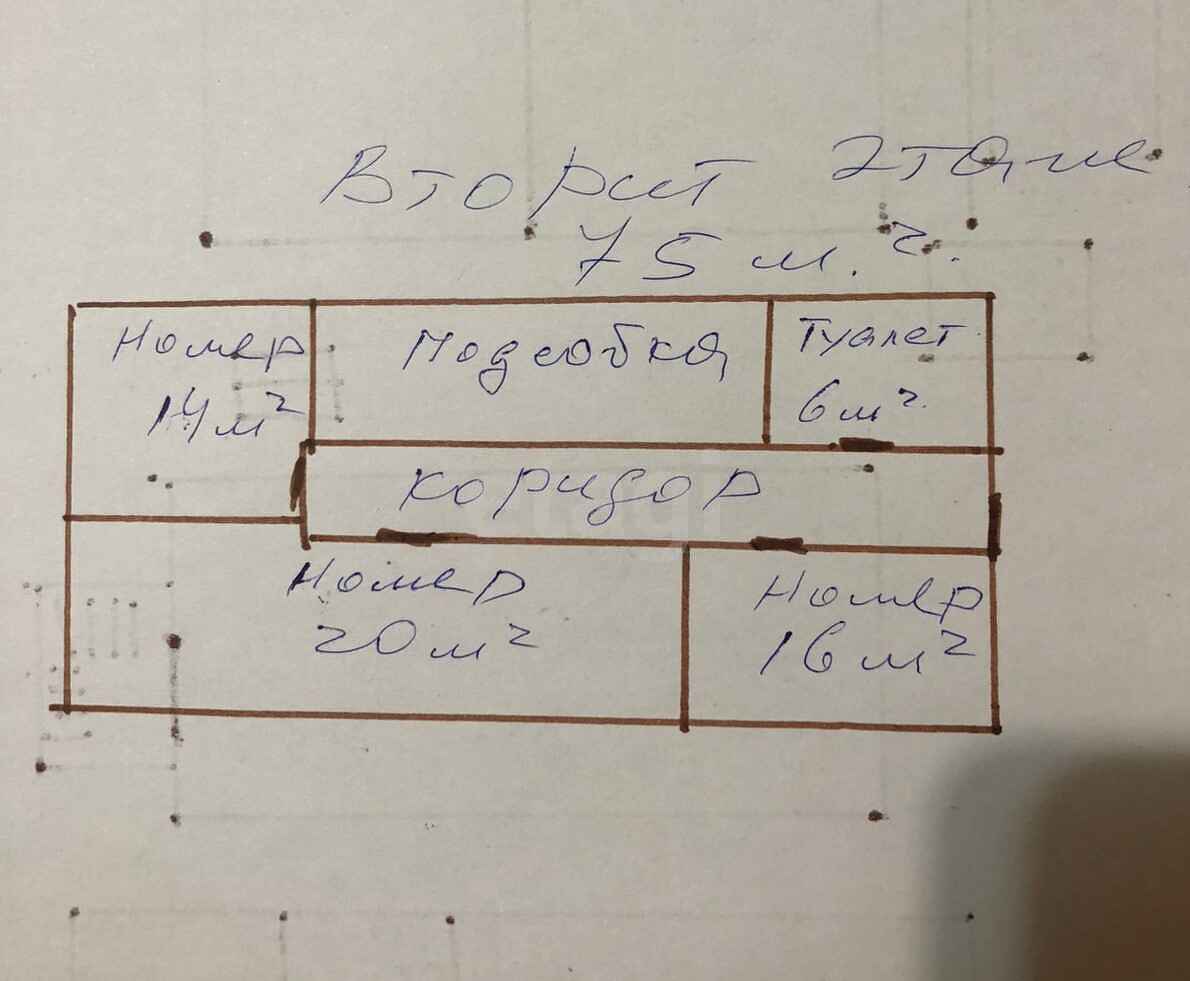 Вторит этаж
75 м.2.
Номер
14м2
Подсобка
Туалет
6м2.
коридор
Номер
20м2
Номер
16м2